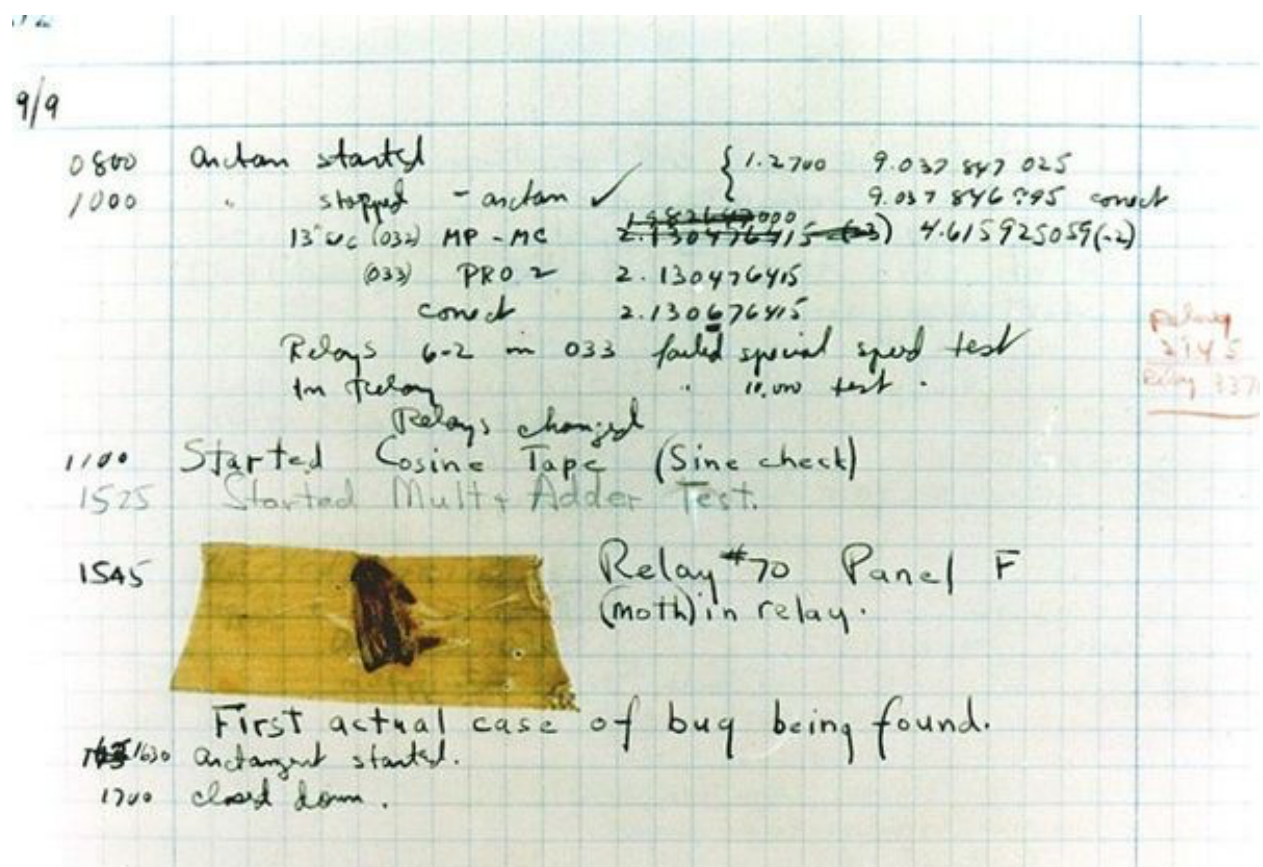 9/9
0800 arctan started { 1.2700 9.037 847 025
1000 " stopped - arctan ✓ 9.037 846 995 correct
13"uc (032) MP - MC 1.982647000 2.130476415 (-3) 4.615925059(-2)
(033) PRO 2 2.130476415
correct 2.130676415
Relays 6-2 in 033 failed special speed test
In Relay " 10,000 test .
Relays changed
1100 Started Cosine Tape (Sine check)
1525 Started Mult + Adder Test.
1545 Relay #70 Panel F
(moth) in relay.
First actual case of bug being found.
1630 arctangent started.
1700 closed down.
Relay
2145
Relay 337